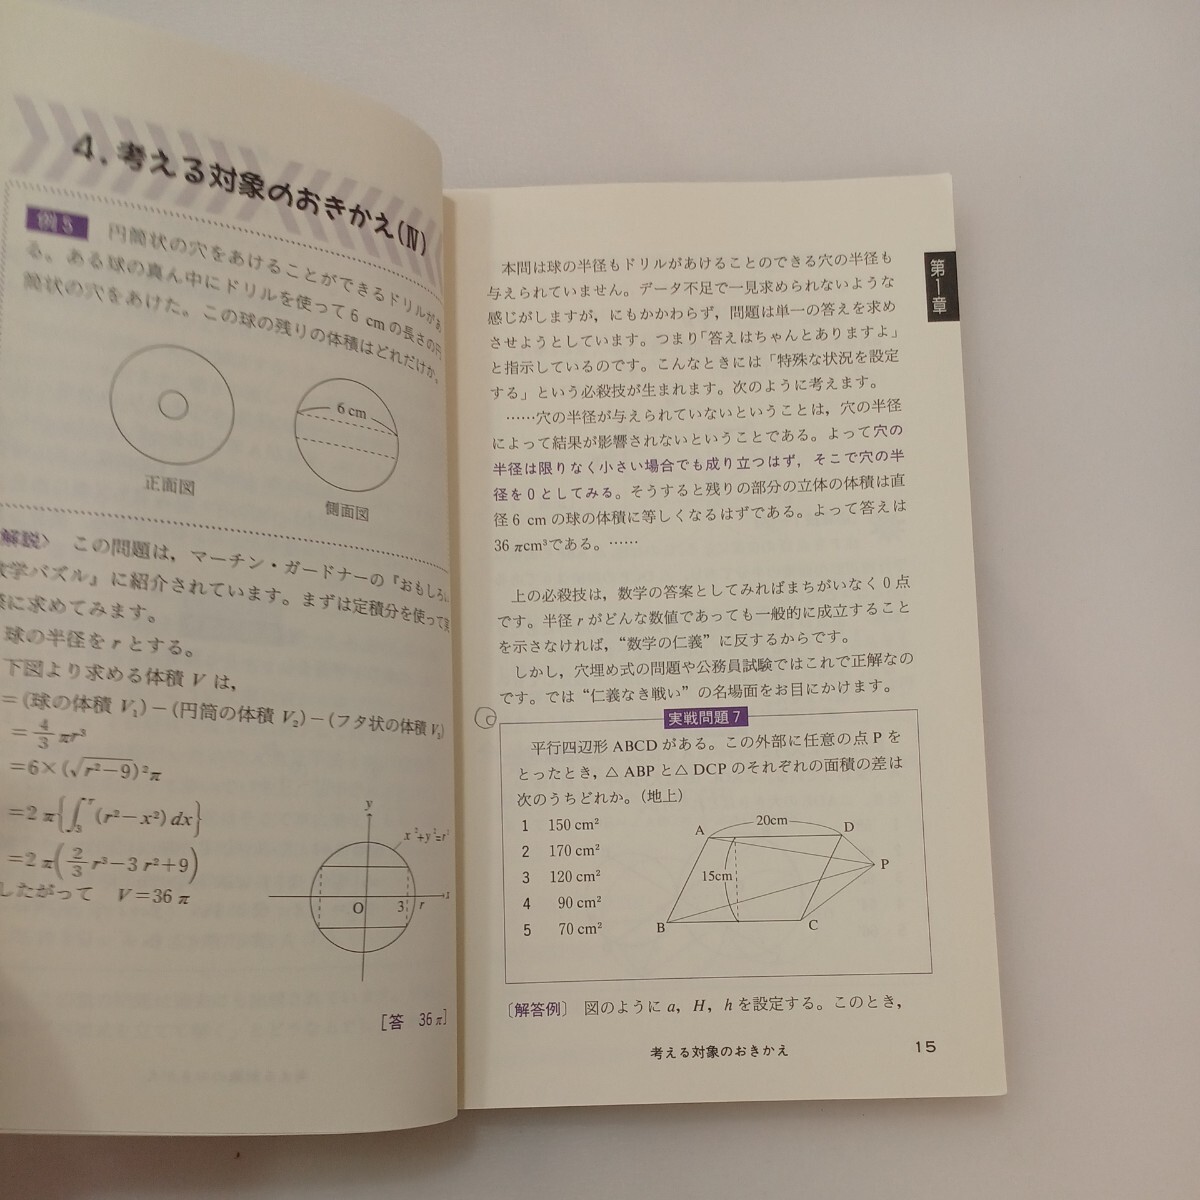 4. 考える対象のおきかえ(Ⅳ)
例5 円筒状の穴をあけることができるドリルがあ
る。ある球の真ん中にドリルを使って6 cmの長さの円
筒状の穴をあけた。この球の残りの体積はどれだけか。
6 cm
正面図
側面図
解説〉 この問題は，マーチン・ガードナーの『おもしろい
数学パズル』に紹介されています。まずは定積分を使って実
際に求めてみます。
球の半径を r とする。
下図より求める体積 V は，
＝(球の体積 V₁)－(円筒の体積 V₂)－(フタ状の体積 V₃)
＝4/3 πr³
＝6×(√r²－9)²π
＝2π{∫₃ʳ (r²－x²) dx}
＝2π(2/3 r³－3 r²＋9)
したがって V＝36 π
y
x²＋y²＝r²
O
3
r
x
[答 36π]
第1章
本問は球の半径もドリルがあけることのできる穴の半径も
与えられていません。データ不足で一見求められないような
感じがしますが，にもかかわらず，問題は単一の答えを求め
させようとしています。つまり「答えはちゃんとありますよ」
と指示しているのです。こんなときには「特殊な状況を設定
する」という必殺技が生まれます。次のように考えます。
……穴の半径が与えられていないということは，穴の半径
によって結果が影響されないということである。よって穴の
半径は限りなく小さい場合でも成り立つはず，そこで穴の半
径を0としてみる。そうすると残りの部分の立体の体積は直
径6 cmの球の体積に等しくなるはずである。よって答えは
36 πcm³である。……
上の必殺技は，数学の答案としてみればまちがいなく0点
です。半径 r がどんな数値であっても一般的に成立すること
を示さなければ，“数学の仁義”に反するからです。
しかし，穴埋め式の問題や公務員試験ではこれで正解なの
です。では“仁義なき戦い”の名場面をお目にかけます。
実戦問題7
平行四辺形 ABCD がある。この外部に任意の点 P を
とったとき，△ ABP と△ DCP のそれぞれの面積の差は
次のうちどれか。（地上）
1 150 cm²
2 170 cm²
3 120 cm²
4 90 cm²
5 70 cm²
20cm
A
D
P
15cm
B
C
〔解答例〕 図のように a，H，h を設定する。このとき，
考える対象のおきかえ 15